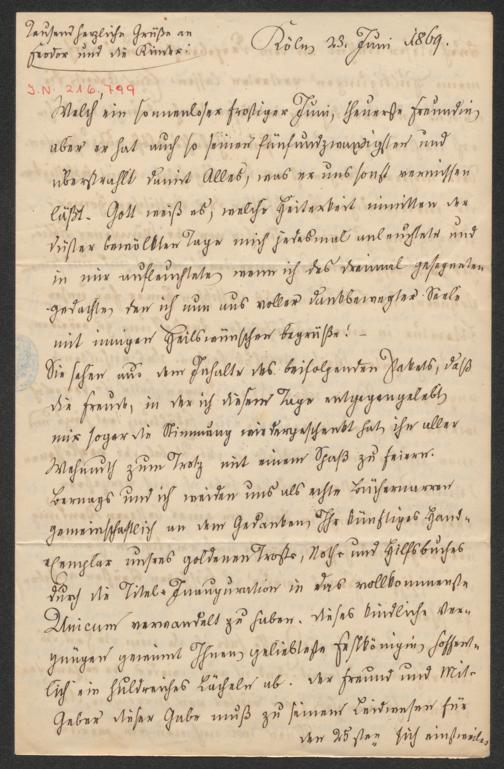 Tausend herzliche Grüße an
Feodor und die Kinder!
Köln, 23. Juni 1869.
I.N. 216,799
Welch ein sonnenloser frostiger Juni, theuerste Freundin,
aber er hat auch so seinen fünfundzwanzigsten und
überstrahlt damit Alles, was er uns sonst vermissen
läßt. Gott weiß es, welche Heiterkeit inmitten der
düster bewölkten Tage mich jedesmal anleuchtete und
in mir aufleuchtete, wenn ich des dreimal gesegneten
gedachte, den ich nun aus voller dankbewegter Seele
mit innigen Heilswünschen begrüße! –
Sie sehen aus dem Inhalte des beifolgenden Pakets, daß
die Freude, in der ich diesem Tage entgegengelebt,
mir sogar die Stimmung wiedergeschenkt hat, ihn aller
Wehmuth zum Trotz mit einem Spaß zu feiern.
Bernays und ich weiden uns als echte Büchernarren
gemeinschaftlich an dem Gedanken, Ihr künftiges Hand-
exemplar unsres goldenen Trost-, Noth- und Hilfsbuches
durch die Titel-Inauguration in das vollkommenste
Unicum verwandelt zu haben. Dieses kindliche Ver-
gnügen gewinnt Ihnen, geliebteste Festkönigin, hoffent-
lich ein huldreiches Lächeln ab. Der Freund und Mit-
Geber dieser Gabe muß zu seinem Leidwesen für
den 25sten sich einstweilen